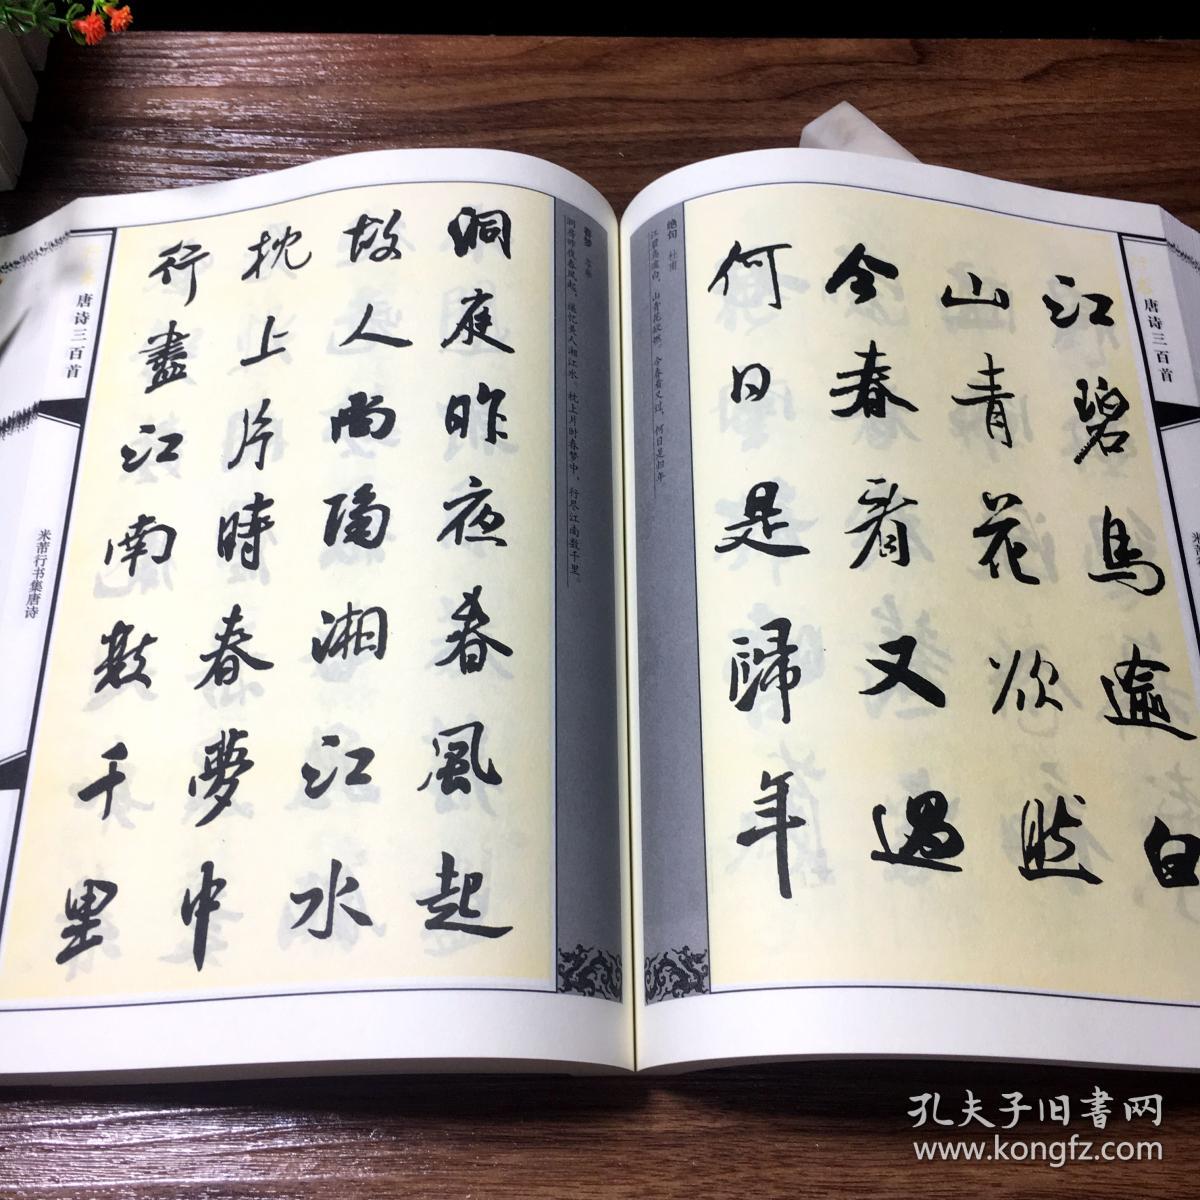 唐诗三百首
江碧鳥逾白
山青花欲然
今春看又過
何日是歸年
绝句 杜甫
江碧鸟逾白，山青花欲燃。今春看又过，何日是归年
春梦 岑参
洞房昨夜春风起，遥忆美人湘江水。枕上片时春梦中，行尽江南数千里。
洞庭昨夜春風起
故人尚隔湘江水
枕上片時春夢中
行盡江南數千里
唐诗三百首
米芾行书集唐诗
孔夫子旧书网
www.kongfz.com